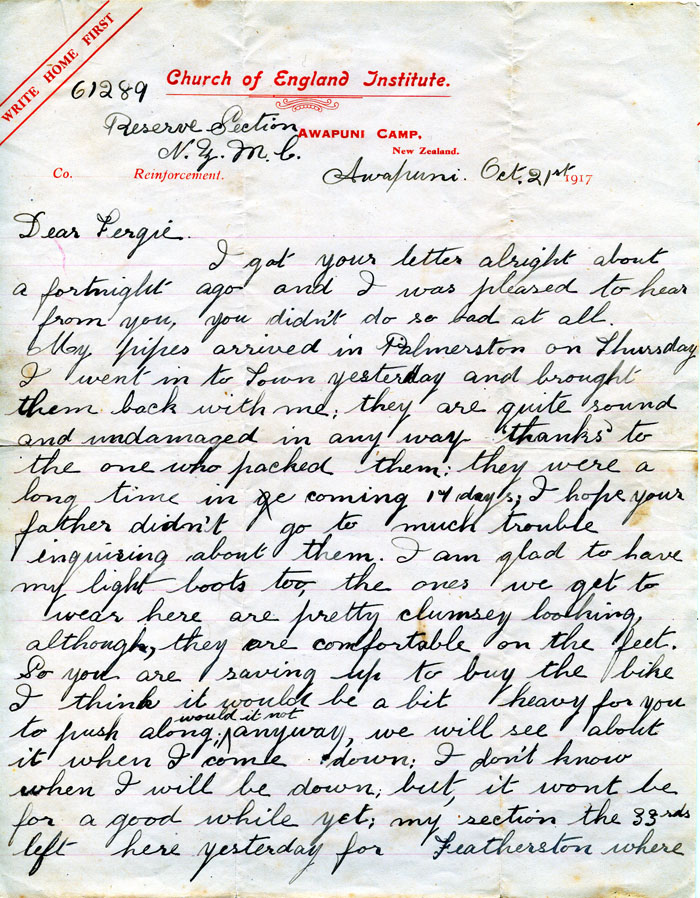 WRITE HOME FIRST
61289
Church of England Institute.
Reserve Section
AWAPUNI CAMP,
N.Z.M.C.
New Zealand.
Co. Reinforcement.
Awapuni. Oct. 21st 1917
Dear Fergie.
I got your letter alright about
a fortnight ago and I was pleased to hear
from you, you didn't do so bad at all.
My pipes arrived in Palmerston on Thursday
I went in to Town yesterday and brought
them back with me; they are quite sound
and undamaged in any way thanks to
the one who packed them; they were a
long time in coming 14 days; I hope your
father didn't go to much trouble
inquiring about them. I am glad to have
my light boots too, the ones we get to
wear here are pretty clumsey looking,
although, they are comfortable on the feet.
So you are saving up to buy the bike
I think it would be a bit heavy for you
to push along; would it not anyway, we will see about
it when I come down; I don't know
when I will be down; but, it wont be
for a good while yet; my section the 33rds
left here yesterday for Featherston where